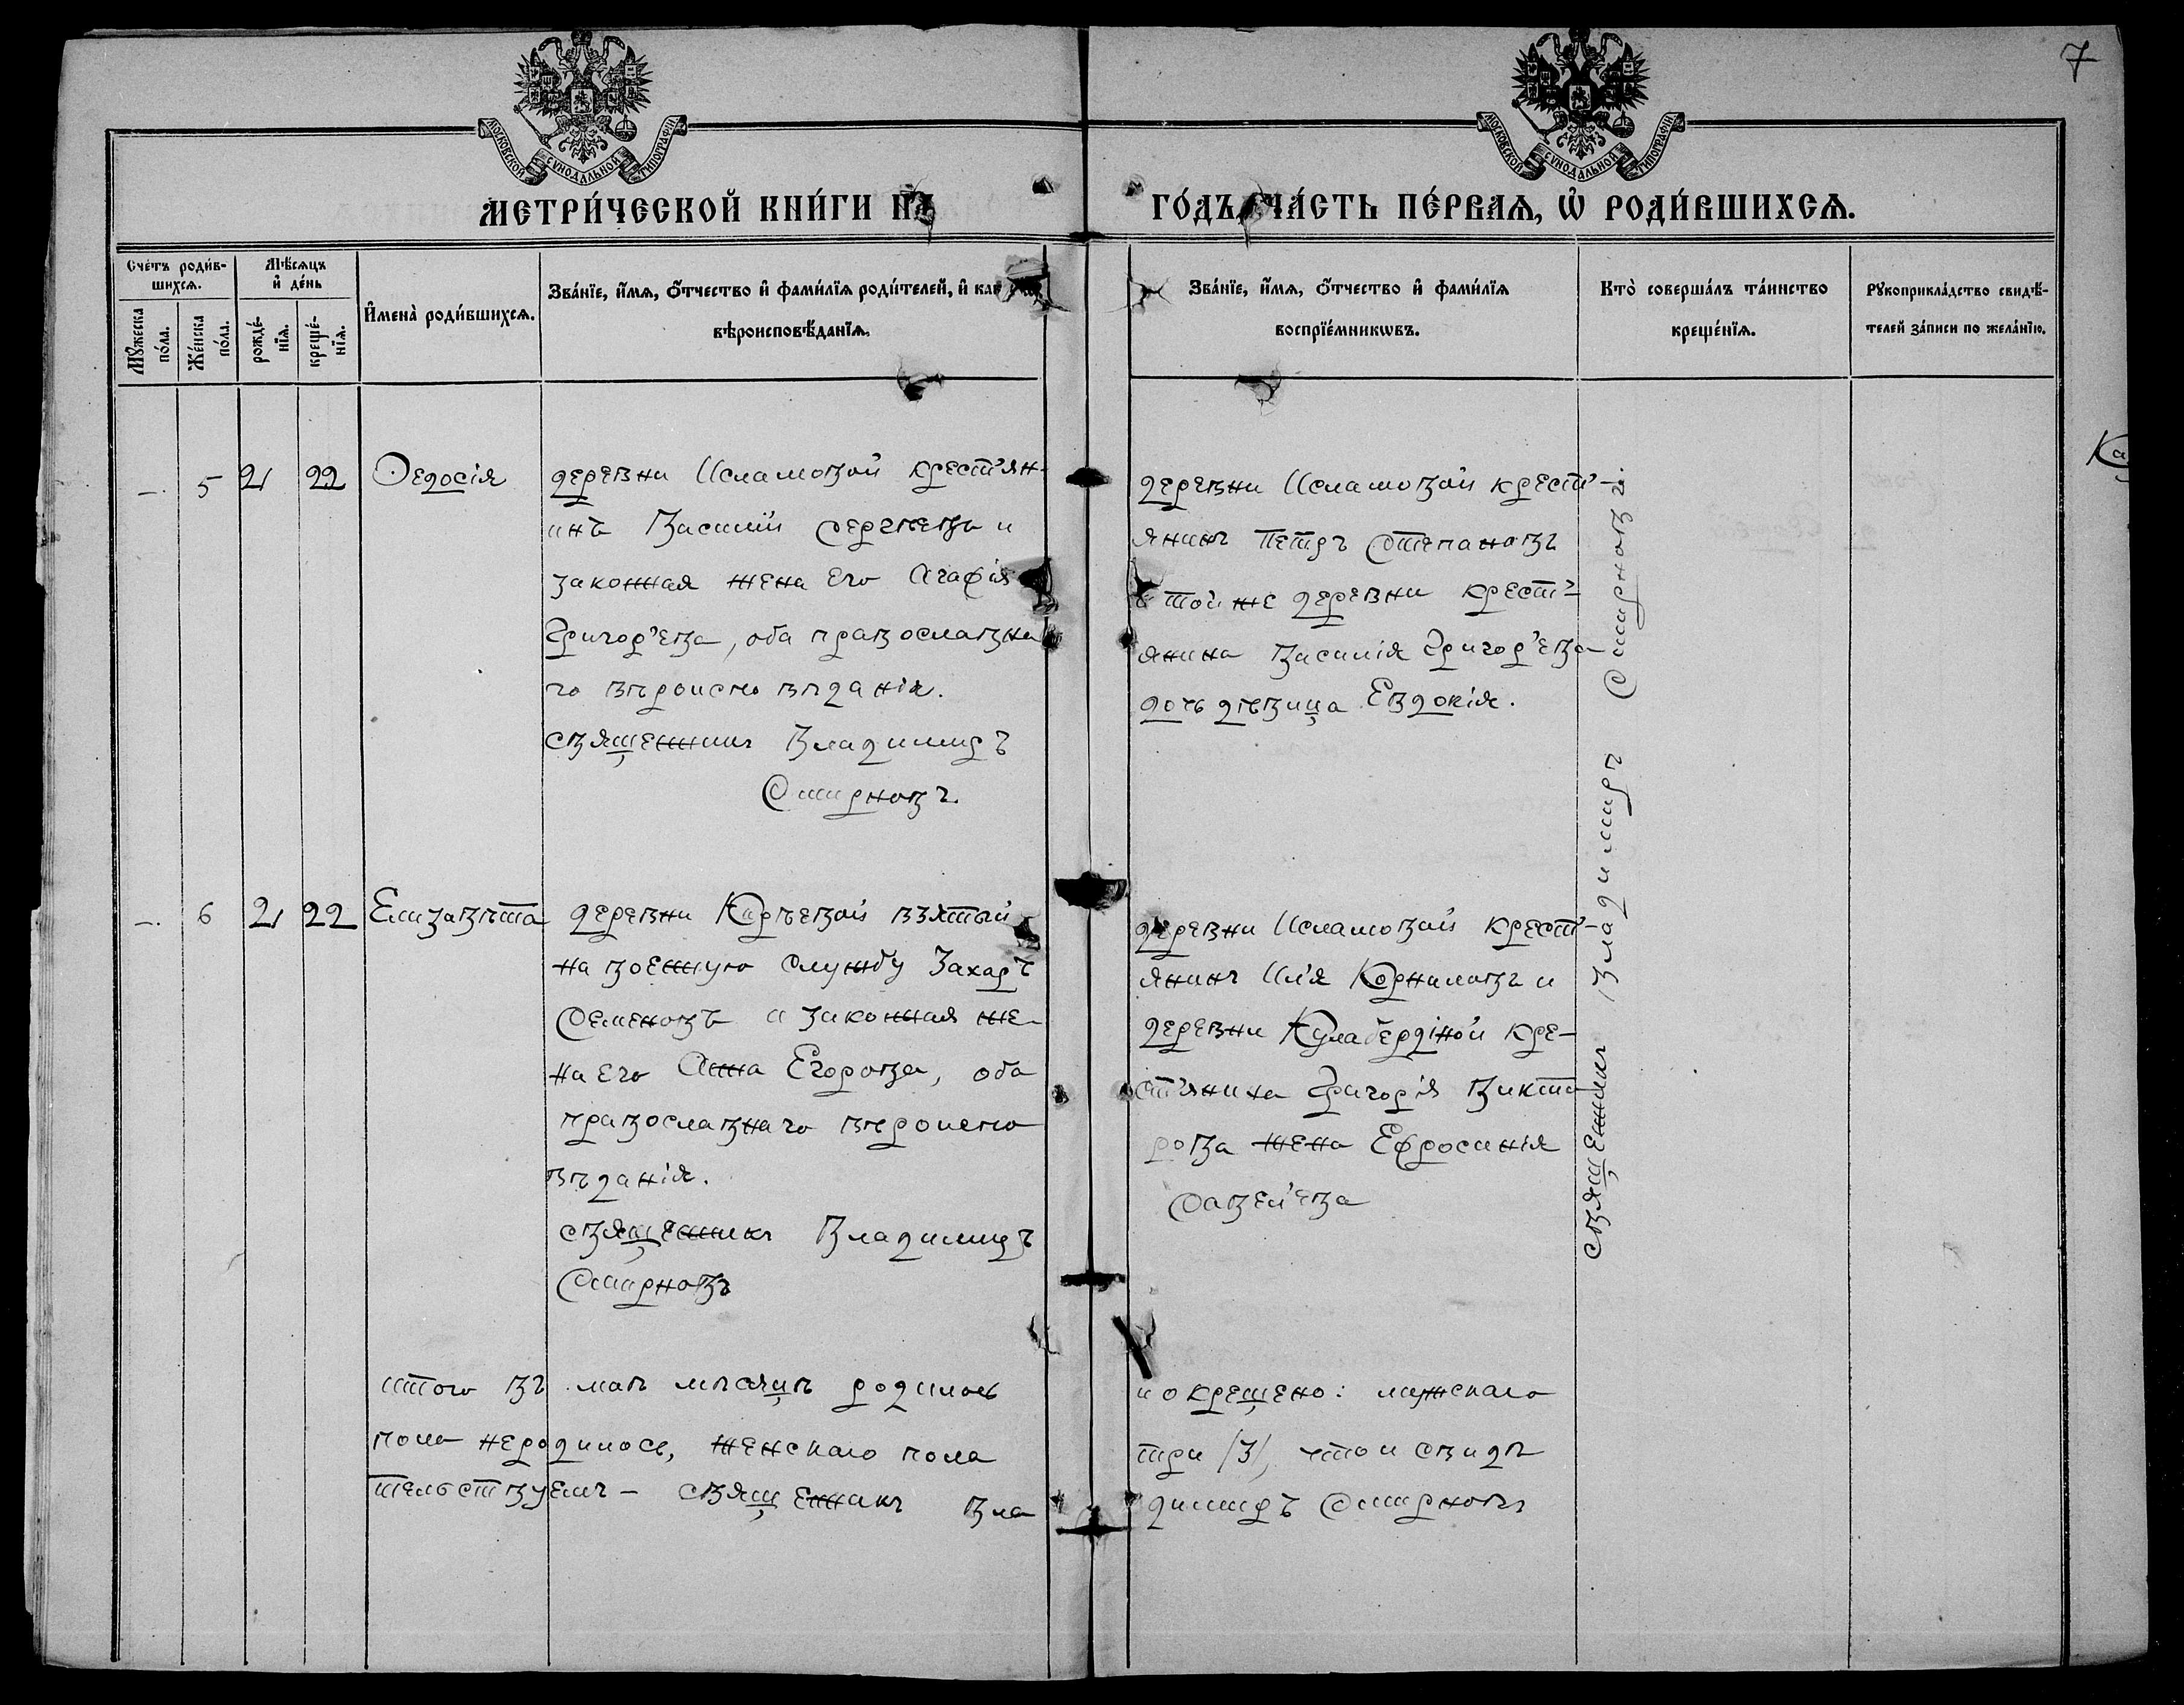 7
МОСКОВСКОЙ СѴНОДАЛЬНОЙ ТИПОГРАФІИ
МОСКОВСКОЙ СѴНОДАЛЬНОЙ ТИПОГРАФІИ
МЕТРИ́ЧЕСКОЙ КНИ́ГИ НА̀ ГО́ДЪ, ЧА́СТЬ ПЕ́РВАѦ, Ѡ҆ РОДИ́ВШИХСѦ.
Сче́тъ роди́в-
шихсѧ.
Мꙋ́жеска
по́ла.
Же́нска
по́ла.
Мѣ́сѧцъ
и҆ де́нь
рожде́-
нїѧ.
креще́-
нїѧ.
И҆мена̀ роди́вшихсѧ.
Зва́нїе, и҆́мѧ, ѻ҆́тчество и҆ фамѝлїѧ роди́телей, и҆
вѣроисповѣ́данїѧ.
Зва́нїе, и҆́мѧ, ѻ҆́тчество и҆ фами́лїѧ
воспрїе́мникѡвъ.
Кто̀ соверша́лъ та́инство
креще́нїѧ.
Рꙋкоприкла́дство свидѣ́-
телей за́писи по жела́нїю.
—. 5 21 22 Ѳедосія
деревни Исламовой крестьян-
инъ Василій Сергѣевъ и
законная жена его Агафія
Григорьева, оба православна
го вѣроисповѣданія.
священникъ Владимиръ
Смирновъ.
деревни Исламовой кресть-
янинъ Петръ Степановъ
и той же деревни кресть-
янина Василія Григорьева
дочь дѣвица Евдокія.
священникъ Владимиръ Смирновъ.
—. 6 21 22 Елизавѣта
деревни Кирѣевой взятый
на военную службу Захаръ
Семеновъ и законная же-
на его Анна Егорова, оба
православнаго вѣроиспо
вѣданія.
священникъ Владимиръ
Смирновъ
деревни Исламовой кресть-
янинъ Илья Корниловъ и
деревни Кулабердіной кре-
стьянина Григорія Викто
рова жена Ефросинія
Савельева
итого въ маѣ мѣсяцѣ родилось и окрещено: мужскаго
пола не родилось, женскаго пола три /3/, что и свидѣ
тельствуемъ — священникъ Владимиръ Смирновъ
Ка